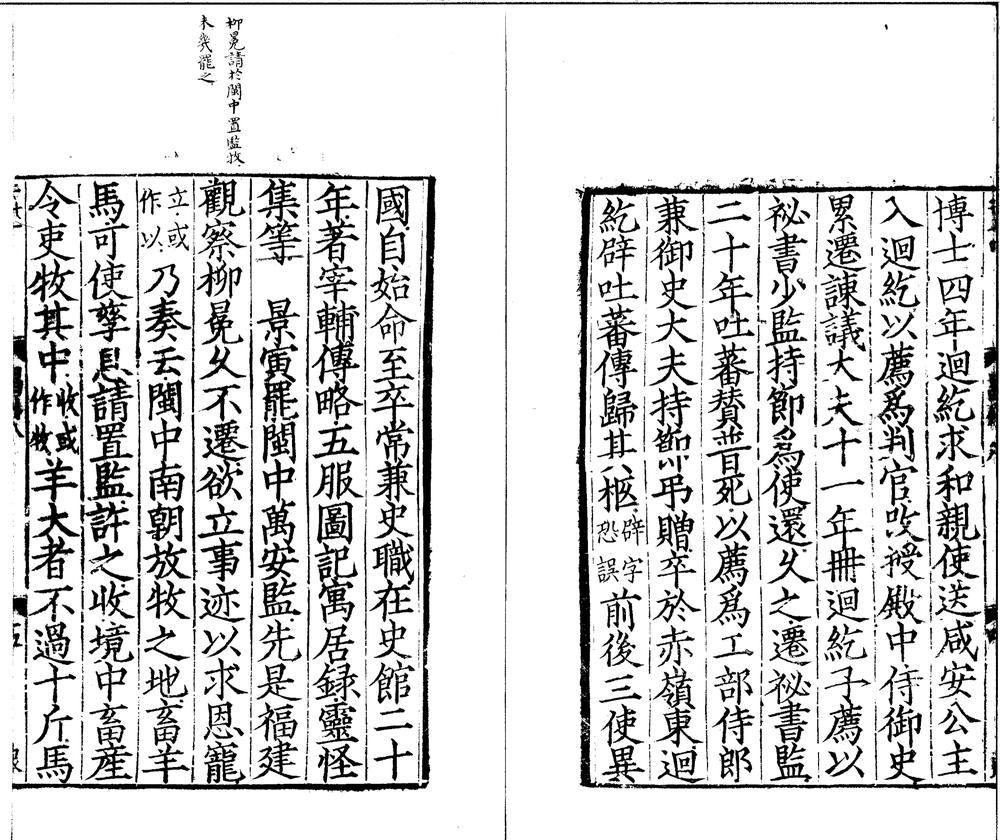 博士四年迴紇求和親使送咸安公主
入迴紇以薦爲判官改授殿中侍御史
累遷諫議大夫十一年冊迴紇子薦以
祕書少監持節爲使還久之遷祕書監
二十年吐蕃贊普死以薦爲工部侍郎
兼御史大夫持節弔贈卒於赤嶺東迴
紇辟吐蕃傳歸其柩辟字恐誤前後三使異
國自始命至卒常兼史職在史館二十
年著宰輔傳略五服圖記寓居録靈怪
集等　景寅罷閩中萬安監先是福建
觀察柳冕久不遷欲立事迹以求恩寵
立或作以乃奏云閩中南朝放牧之地畜羊
馬可使孳息請置監許之收境中畜產
令吏牧其中收或作牧羊大者不過十斤馬
柳冕請於閩中置監牧
未幾罷之